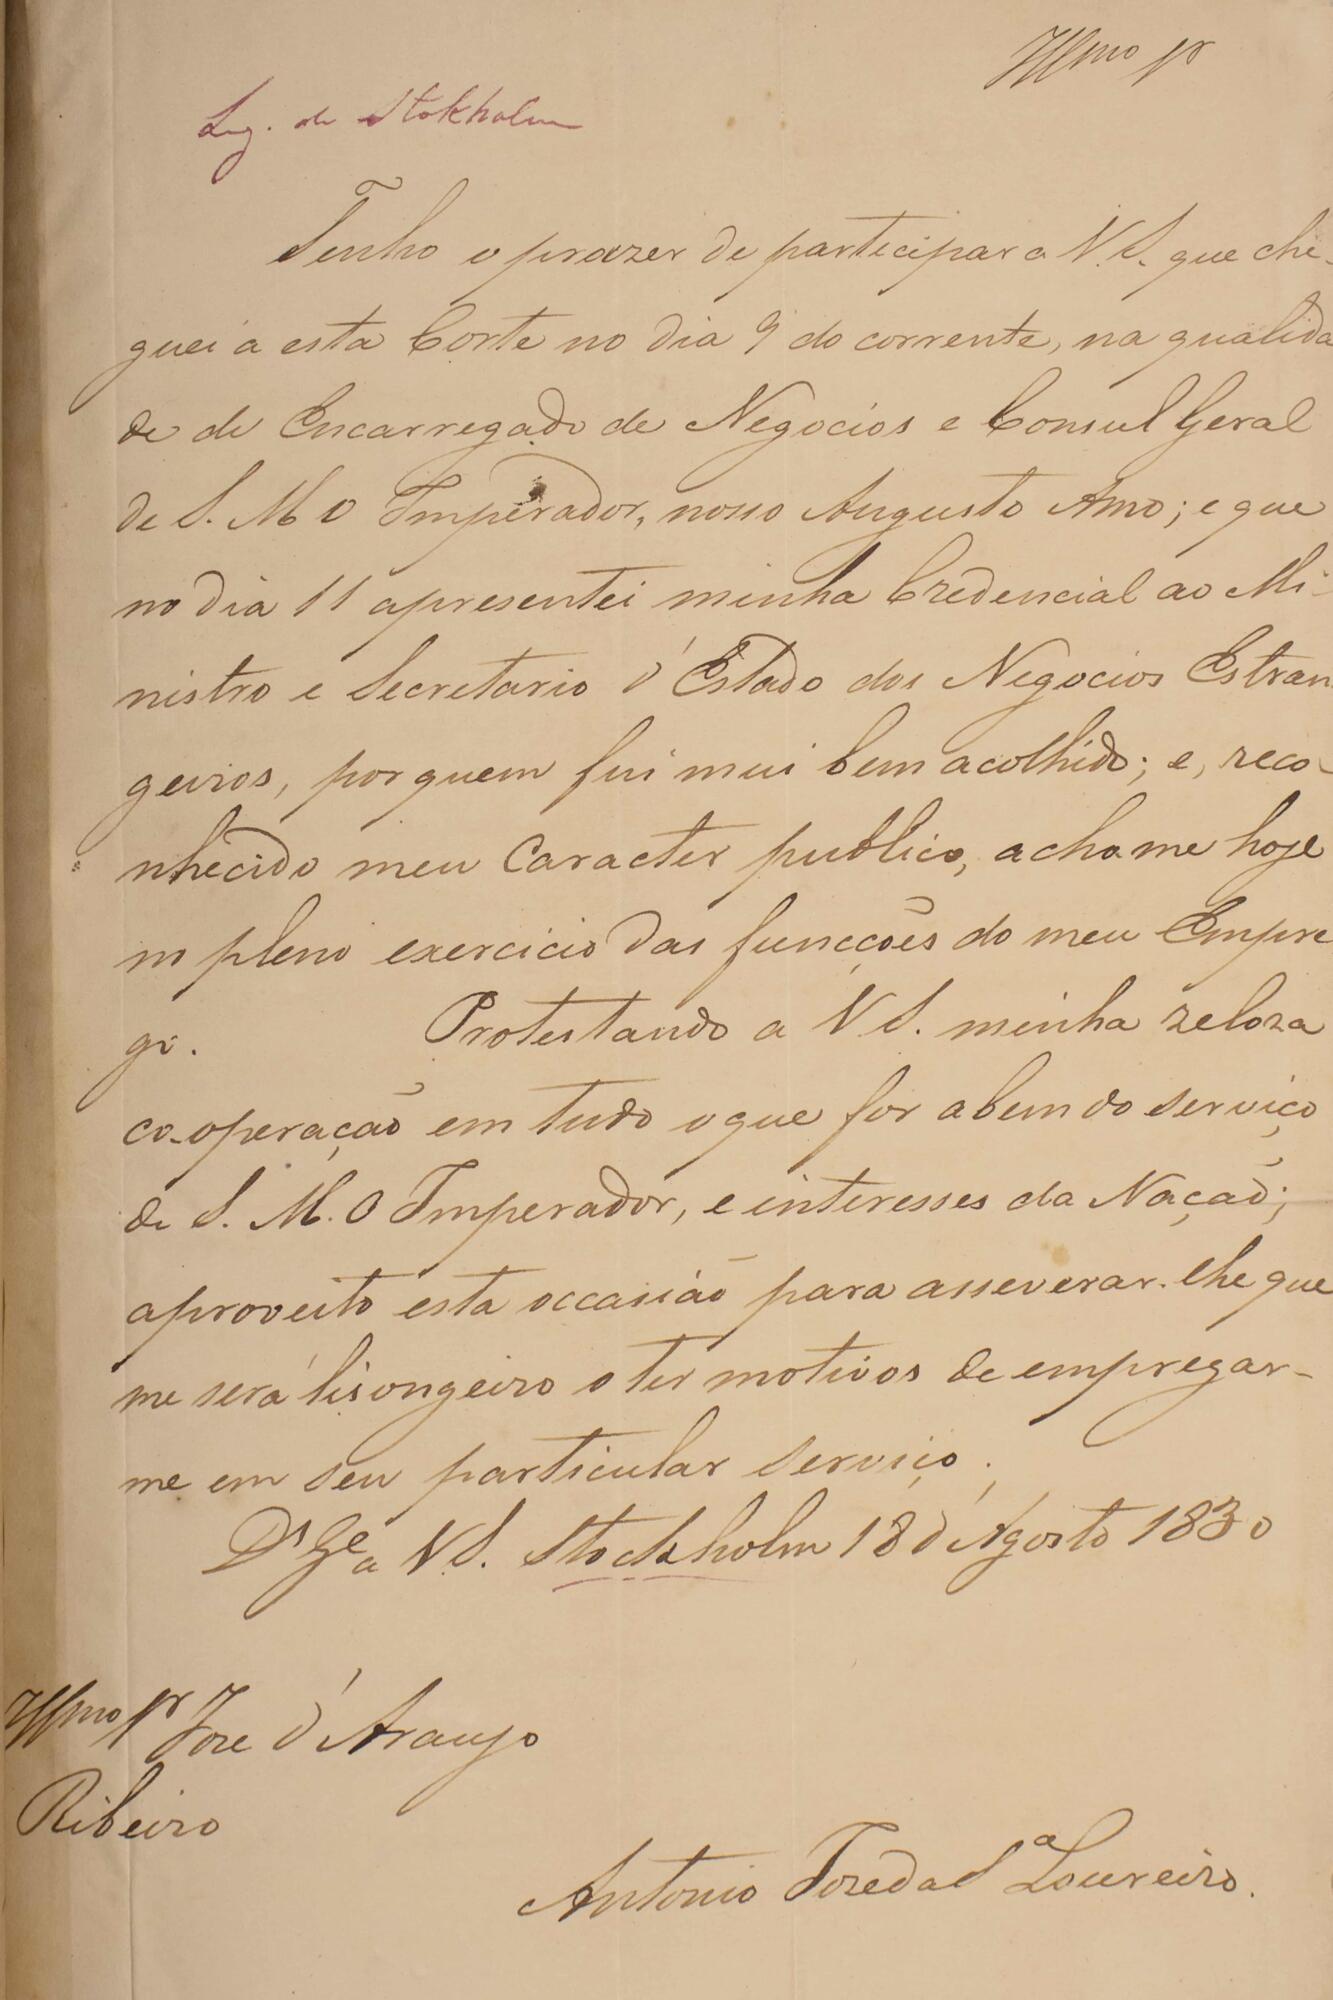 Illmo Sr
Leg. de Stokholm
Tenho o prazer de participar a V. S. que che-
guei a esta Corte no dia 9 do corrente, na qualida
de de Encarregado de Negocios e Consul Geral
de S. M. O Imperador, nosso Augusto Amo; e que
no dia 11 apresentei minha Credencial ao Mi-
nistro e Secretario d'Estado dos Negocios Estran
geiros, por quem fui mui bem acolhido; e, reco-
nhecido meu Caracter publico, acho me hoje
no pleno exercicio das funcções do meu Empre
go. Protestando a V S. minha zeloza
co-operação em tudo o que for a bem do serviço
de S. M. O Imperador, e interesses da Nação;
aproveito esta occasião para asseverar-lhe que
me será lisongeiro o ter motivos de empregar-
me em seu particular serviço.
Ds Ge a V S. Stockholm 18 d'Agosto 1830
Illmo Sr Joze d'Araujo
Ribeiro
Antonio Joze da Sa Loureiro.